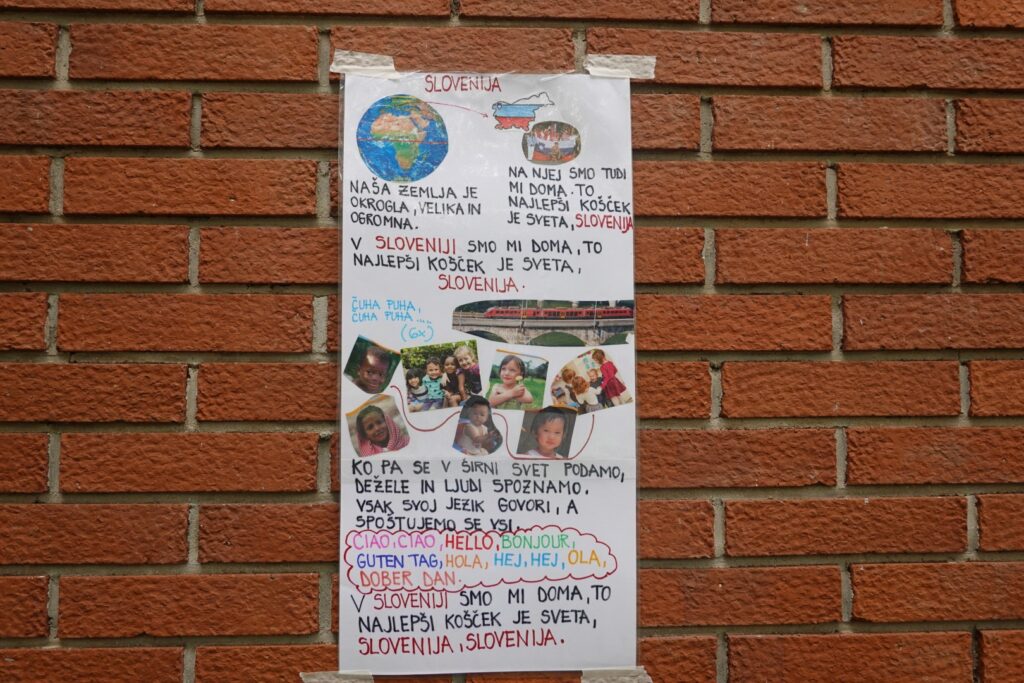 SLOVENIJA
NAŠA ZEMLJA JE
OKROGLA, VELIKA IN
OGROMNA.
NA NJEJ SMO TUDI
MI DOMA. TO
NAJLEPŠI KOŠČEK
JE SVETA, SLOVENIJA
V SLOVENIJI SMO MI DOMA, TO
NAJLEPŠI KOŠČEK JE SVETA,
SLOVENIJA.
ČUHA PUHA,
ČUHA PUHA....
(6x)
KO PA SE V ŠIRNI SVET PODAMO,
DEŽELE IN LJUDI SPOZNAMO.
VSAK SVOJ JEZIK GOVORI, A
SPOŠTUJEMO SE VSI.
CIAO, CIAO, HELLO, BONJOUR,
GUTEN TAG, HOLA, HEJ, HEJ, OLA,
DOBER DAN.
V SLOVENIJI SMO MI DOMA, TO
NAJLEPŠI KOŠČEK JE SVETA,
SLOVENIJA, SLOVENIJA.